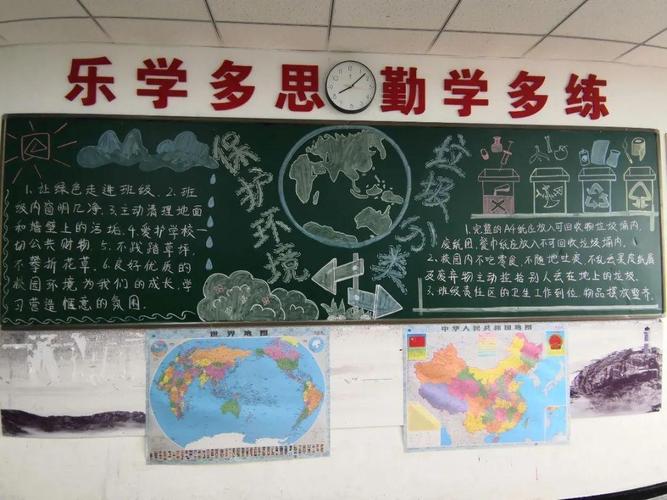 乐学多思 勤学多练
保护环境
垃圾分类
1、让绿色走进班级、2、班
级内窗明几净、3、主动清理地面
和墙壁上的污垢、4、爱护学校一
切公共财物 5、不践踏草坪、
不攀折花草、6、良好优质的
校园环境为我们的成长、学
习营造惬意的氛围
1、完整的A4纸应放入可回收物垃圾桶内、
废纸团、餐巾纸应放入不可回收垃圾桶内、
2、校园内不吃零食、不随地吐痰、不乱丢果皮纸屑
及废弃物主动捡拾别人丢在地上的垃圾、
3、班级责任区的卫生工作到位、物品摆放整齐、
世界地图
中华人民共和国地图